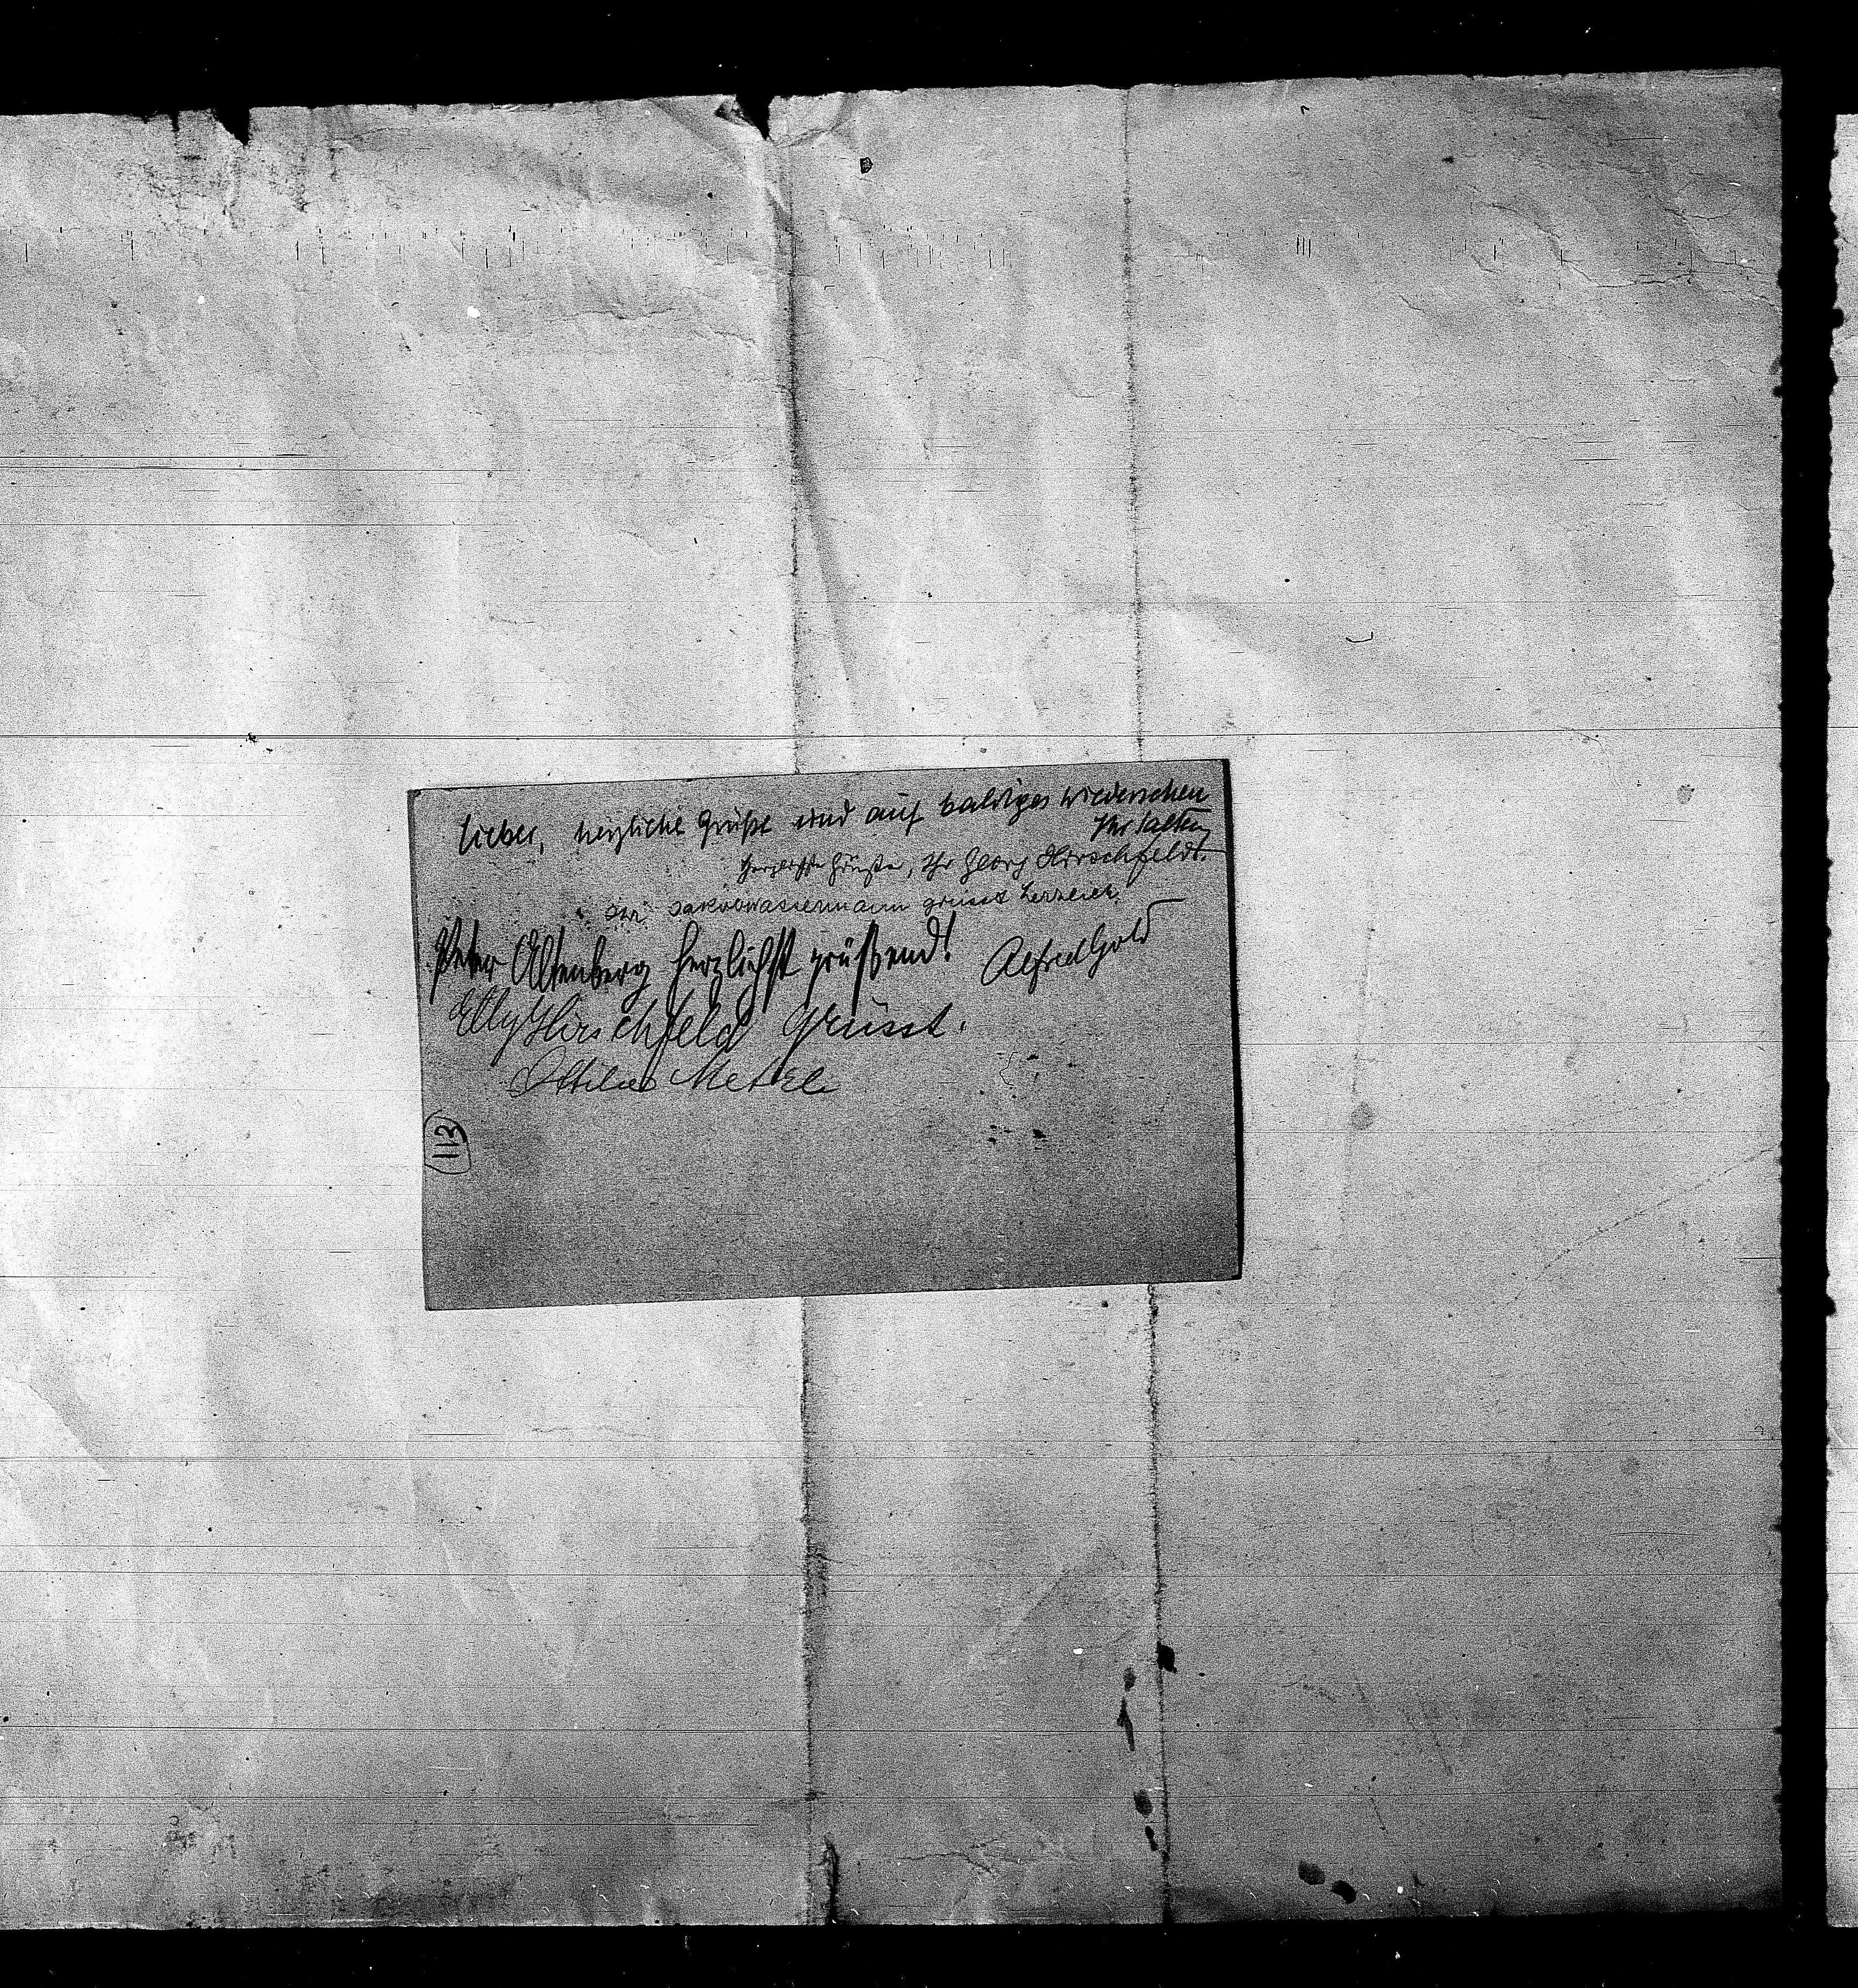 Lieber, herzliche Grüße und auf baldiges Wiedersehen
Ihr Salten
Herzlichste Grüße, Ihr Georg Hirschfeld.
Ihr Jakob Wassermann grüsst herzlich.
Peter Altenberg herzlichst grüßend! Alfred Gold
Elly Hirschfeld grüsst.
Ottilie Metzl
113